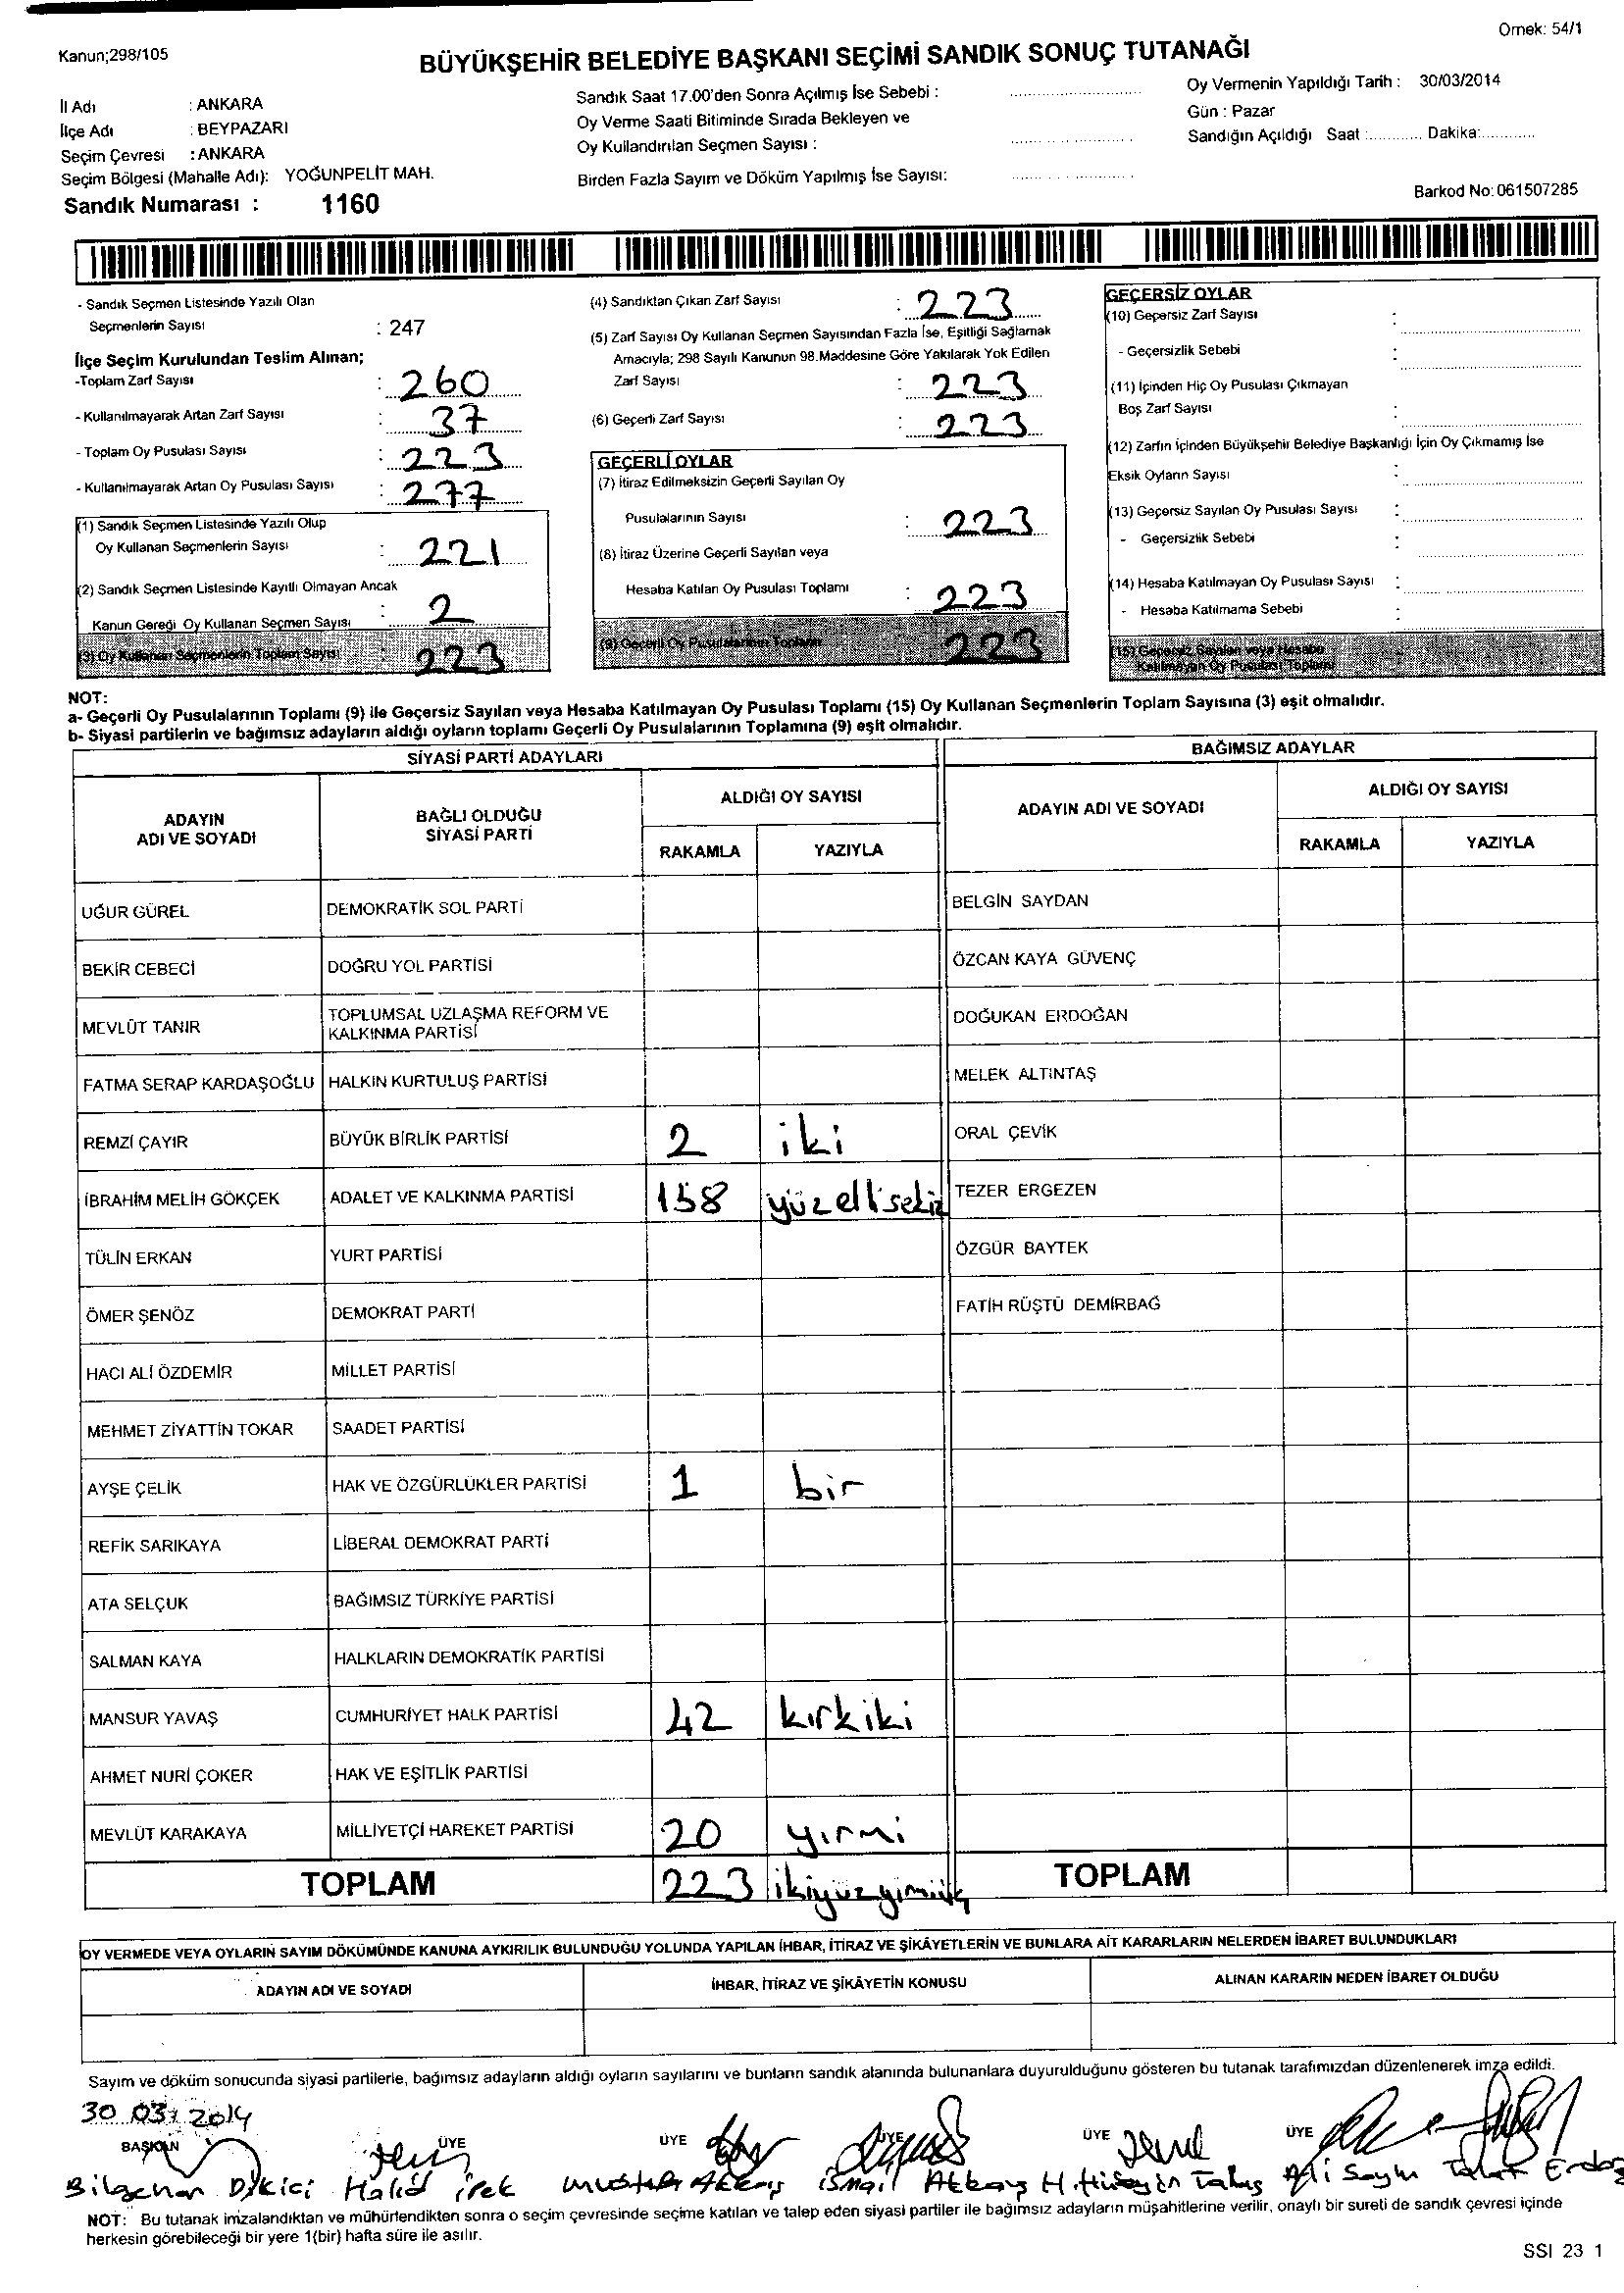 Kanun;298/105
Örnek: 54/1
BÜYÜKŞEHİR BELEDİYE BAŞKANI SEÇİMİ SANDIK SONUÇ TUTANAĞI
İl Adı : ANKARA
İlçe Adı : BEYPAZARI
Seçim Çevresi : ANKARA
Seçim Bölgesi (Mahalle Adı): YOĞUNPELİT MAH.
Sandık Numarası : 1160
Sandık Saat 17.00'den Sonra Açılmış İse Sebebi :
Oy Verme Saati Bitiminde Sırada Bekleyen ve
Oy Kullandırılan Seçmen Sayısı :
Birden Fazla Sayım ve Döküm Yapılmış İse Sayısı:
Oy Vermenin Yapıldığı Tarih : 30/03/2014
Gün : Pazar
Sandığın Açıldığı Saat :............ Dakika:............
Barkod No: 061507285
- Sandık Seçmen Listesinde Yazılı Olan
Seçmenlerin Sayısı : 247
İlçe Seçim Kurulundan Teslim Alınan;
-Toplam Zarf Sayısı : 260
- Kullanılmayarak Artan Zarf Sayısı : 37
- Toplam Oy Pusulası Sayısı : 223
- Kullanılmayarak Artan Oy Pusulası Sayısı : 277
(1) Sandık Seçmen Listesinde Yazılı Olup
Oy Kullanan Seçmenlerin Sayısı : 221
(2) Sandık Seçmen Listesinde Kayıtlı Olmayan Ancak
Kanun Gereği Oy Kullanan Seçmen Sayısı : 2
(3) Oy Kullanan Seçmenlerin Toplam Sayısı : 223
(4) Sandıktan Çıkan Zarf Sayısı : 223
(5) Zarf Sayısı Oy Kullanan Seçmen Sayısından Fazla İse, Eşitliği Sağlamak
Amacıyla; 298 Sayılı Kanunun 98.Maddesine Göre Yakılarak Yok Edilen
Zarf Sayısı : 223
(6) Geçerli Zarf Sayısı : 223
GEÇERLİ OYLAR
(7) İtiraz Edilmeksizin Geçerli Sayılan Oy
Pusulalarının Sayısı : 223
(8) İtiraz Üzerine Geçerli Sayılan veya
Hesaba Katılan Oy Pusulası Toplamı : 223
(9) Geçerli Oy Pusulalarının Toplamı 223
GEÇERSİZ OYLAR
(10) Geçersiz Zarf Sayısı :
- Geçersizlik Sebebi :
(11) İçinden Hiç Oy Pusulası Çıkmayan
Boş Zarf Sayısı :
(12) Zarfın İçinden Büyükşehir Belediye Başkanlığı İçin Oy Çıkmamış İse
Eksik Oyların Sayısı :
(13) Geçersiz Sayılan Oy Pusulası Sayısı :
- Geçersizlik Sebebi :
(14) Hesaba Katılmayan Oy Pusulası Sayısı :
- Hesaba Katılmama Sebebi :
(15) Geçersiz Sayılan veya Hesaba
Katılmayan Oy Pusulası Toplamı
NOT:
a- Geçerli Oy Pusulalarının Toplamı (9) ile Geçersiz Sayılan veya Hesaba Katılmayan Oy Pusulası Toplamı (15) Oy Kullanan Seçmenlerin Toplam Sayısına (3) eşit olmalıdır.
b- Siyasi partilerin ve bağımsız adayların aldığı oyların toplamı Geçerli Oy Pusulalarının Toplamına (9) eşit olmalıdır.
SİYASİ PARTİ ADAYLARI
ADAYIN ADI VE SOYADI BAĞLI OLDUĞU SİYASİ PARTİ ALDIĞI OY SAYISI
RAKAMLA YAZIYLA
UĞUR GÜREL DEMOKRATİK SOL PARTİ
BEKİR CEBECİ DOĞRU YOL PARTİSİ
MEVLÜT TANIR TOPLUMSAL UZLAŞMA REFORM VE KALKINMA PARTİSİ
FATMA SERAP KARDAŞOĞLU HALKIN KURTULUŞ PARTİSİ
REMZİ ÇAYIR BÜYÜK BİRLİK PARTİSİ 2 iki
İBRAHİM MELİH GÖKÇEK ADALET VE KALKINMA PARTİSİ 158 yüzellisekiz
TÜLİN ERKAN YURT PARTİSİ
ÖMER ŞENÖZ DEMOKRAT PARTİ
HACI ALİ ÖZDEMİR MİLLET PARTİSİ
MEHMET ZİYATTİN TOKAR SAADET PARTİSİ
AYŞE ÇELİK HAK VE ÖZGÜRLÜKLER PARTİSİ 1 bir
REFİK SARIKAYA LİBERAL DEMOKRAT PARTİ
ATA SELÇUK BAĞIMSIZ TÜRKİYE PARTİSİ
SALMAN KAYA HALKLARIN DEMOKRATİK PARTİSİ
MANSUR YAVAŞ CUMHURİYET HALK PARTİSİ 42 kırkiki
AHMET NURİ ÇOKER HAK VE EŞİTLİK PARTİSİ
MEVLÜT KARAKAYA MİLLİYETÇİ HAREKET PARTİSİ 20 yırmi
TOPLAM 223
BAĞIMSIZ ADAYLAR
ADAYIN ADI VE SOYADI ALDIĞI OY SAYISI
RAKAMLA YAZIYLA
BELGİN SAYDAN
ÖZCAN KAYA GÜVENÇ
DOĞUKAN ERDOĞAN
MELEK ALTINTAŞ
ORAL ÇEVİK
TEZER ERGEZEN
ÖZGÜR BAYTEK
FATİH RÜŞTÜ DEMİRBAĞ
TOPLAM
OY VERMEDE VEYA OYLARIN SAYIM DÖKÜMÜNDE KANUNA AYKIRILIK BULUNDUĞU YOLUNDA YAPILAN İHBAR, İTİRAZ VE ŞİKÂYETLERİN VE BUNLARA AİT KARARLARIN NELERDEN İBARET BULUNDUKLARI
ADAYIN ADI VE SOYADI İHBAR, İTİRAZ VE ŞİKÂYETİN KONUSU ALINAN KARARIN NEDEN İBARET OLDUĞU
Sayım ve döküm sonucunda siyasi partilerle, bağımsız adayların aldığı oyların sayılarını ve bunların sandık alanında bulunanlara duyurulduğunu gösteren bu tutanak tarafımızdan düzenlenerek imza edildi.
30 03 2014
BAŞKAN ÜYE ÜYE ÜYE ÜYE ÜYE
Dikici Halid irek Mustafa Akkaş ismail Akkaş H.Hüseyin Talaş Ali Sayın
NOT: Bu tutanak imzalandıktan ve mühürlendikten sonra o seçim çevresinde seçime katılan ve talep eden siyasi partiler ile bağımsız adayların müşahitlerine verilir, onaylı bir sureti de sandık çevresi içinde
herkesin görebileceği bir yere 1(bir) hafta süre ile asılır.
SSI 23 1